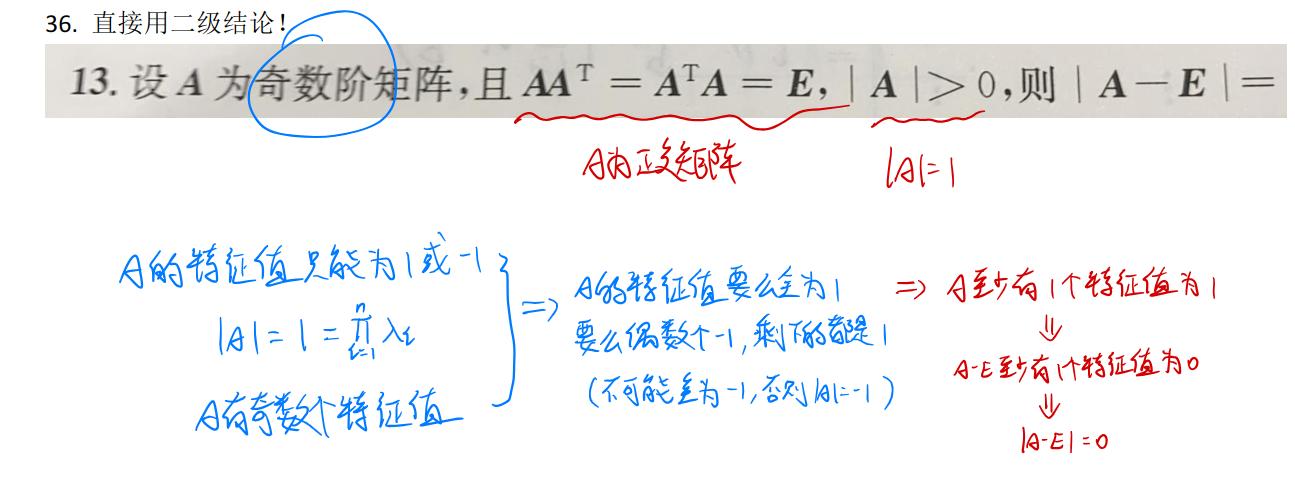 36. 直接用二级结论!
13. 设 A 为奇数阶矩阵,且 AAᵀ = AᵀA = E, | A |> 0,则 | A − E | =
A为正交矩阵
|A|=1
A的特征值只能为1或-1
|A| = 1 = ∏ᵢ₌₁ⁿ λᵢ
A有奇数个特征值
⇒ A的特征值要么全为1
要么偶数个-1,剩下的都是1
(不可能全为-1,否则|A|=-1)
⇒ A至少有1个特征值为1
⇓
A-E至少有1个特征值为0
⇓
|A-E|=0